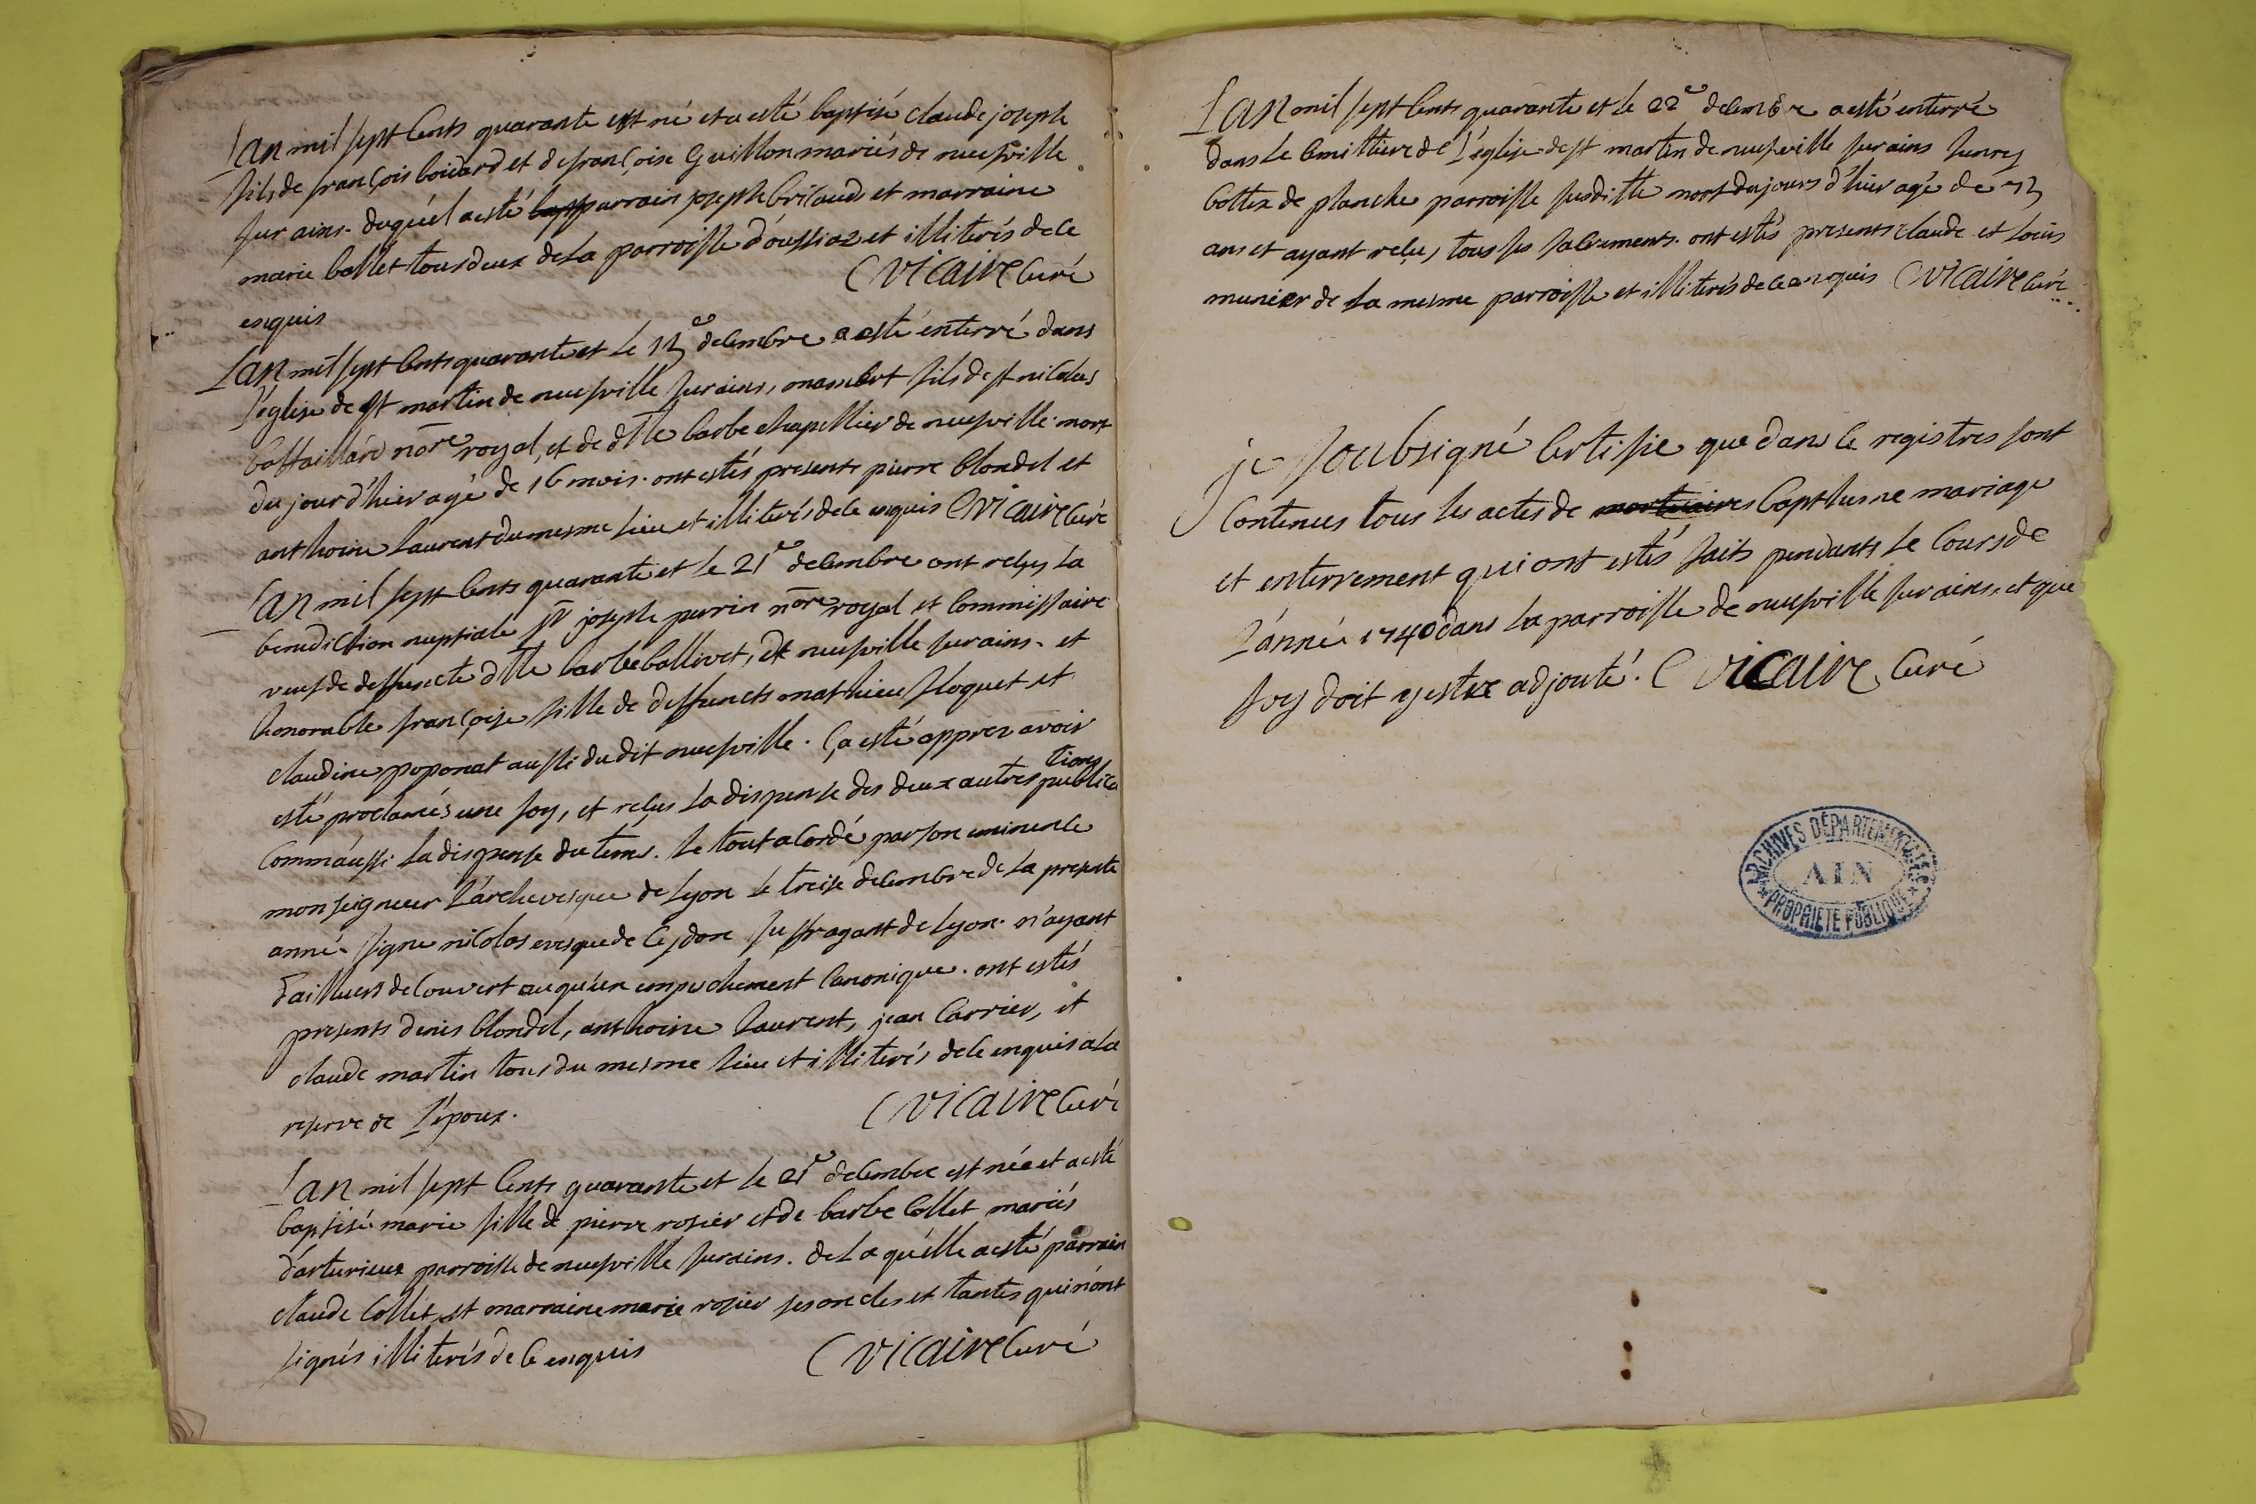 L'an mil sept cents quarante est né et a esté baptisé claude joseph
fils de françois boüard et de françoise Guillon mariés de neufville
sur ains. duquel a esté parrain joseph brilaud et marraine
marie ballet tous deux de la parroisse d'oussiaz et illiterés de ce
enquis C vicaire curé
L'an mil sept cents quarante et le decembre a esté enterré dans
l'église de st martin de neufville sur ains, mambert fils de st nicolas
battaillard nore royal, et de dlle barbe chapellier de neufville. mort
du jour d'hier agé de 16 mois. ont estés presents pierre blondel et
anthoine laurent du mesme lieu et illiterés de ce enquis C vicaire curé
L'an mil sept cents quarante et le 21e decembre ont reçus la
benediction nuptiale joseph perrin nore royal et commissaire
veuf de deffuncte dlle barbe ballivet, de neufville sur ains. et
honorable françoise fille de deffuncts mathieu floquet et
claudine poponat aussi du dit neufville. ça esté apprez avoir
esté proclamés une foy, et reçus la dispense des deux autres publica
tions
comm'aussi la dispense du tems. le tout acordé par son eminence
monseigneur l'archevesque de lyon le treise decembre de la presente
anné. signe nicolas evesque de cydon suffragant de lyon. n'ayant
d'ailleurs decouvert auqu'un empechement canonique. ont estés
presents denis blondel, anthoine laurent, jean carrier, et
claude martin tous du mesme lieu et illiterés de ce enquis a la
reserve de l'époux. C vicaire curé
L'an mil sept cents quarante et le 21e decembre est née et a esté
baptisé marie fille de pierre rosier et de barbe collet mariés
d'arturieux parroisse de neufville sur ains. de laqu'elle a esté parrain
claude collet, et marraine marie rosier ses oncles et tantes qui n'ont
signés illiterés de ce enquis C vicaire curé
L'an mil sept cents quarante et le 22e decembre a esté enterré
dans le cimittiere de l'église de st martin de neufville sur ains
bottex de planche parroisse susditte mort du jours d'hier agé de
ans et ayant reçu, tous ses sacrements. ont estés presents claude et louis
munier de la mesme parroisse et illiterés de ce enquis C vicaire curé
je soubsigné certifie que dans ce registres sont
contenus tous les actes de mortuaires bapthesme mariage
et enterrement qui ont estés faits pendants le cours de
l'année 1740 dans la parroisse de neufville sur ains, et que
foy doit y estre adjouté. C vicaire curé
ARCHIVES DÉPARTEMENTALES
AIN
PROPRIÉTÉ PUBLIQUE